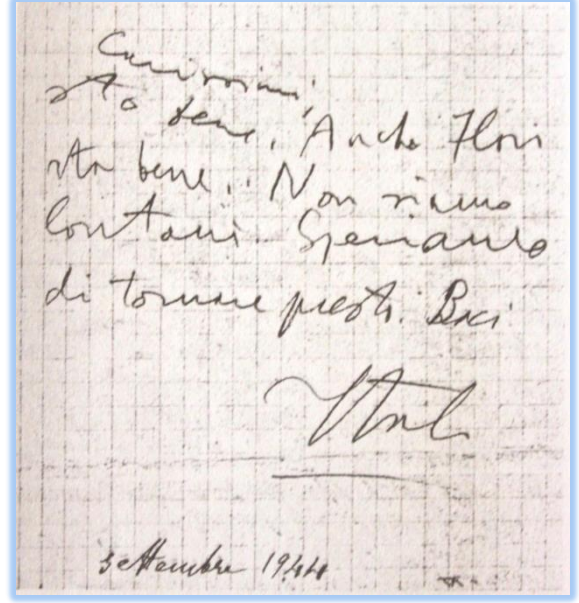 Carissimi,
sto bene. Anche Flori
sta bene. Non siamo
lontani. Speriamo
di tornare presto. Baci
settembre 1944